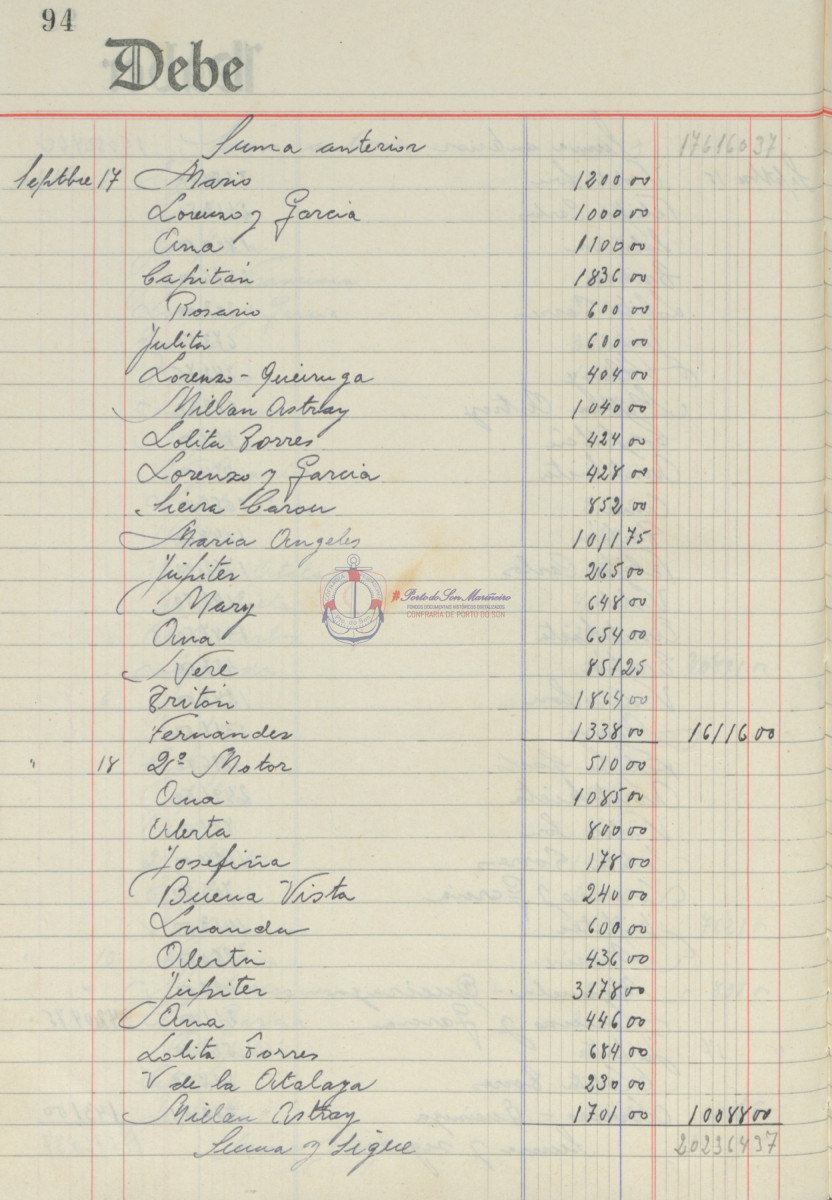 94
Debe
Suma anterior 17616037
Septbre 17 Mario 1200 00
Lorenzo y Garcia 1000 00
Ana 1100 00
Capitán 1836 00
Rosario 600 00
Julita 600 00
Lorenzo - Queiruga 404 00
Millan Astray 1040 00
Lolita Torres 424 00
Lorenzo y Garcia 428 00
Sieira Carou 852 00
Maria Angeles 1011 75
Júpiter 265 00
Mary 648 00
Ana 654 00
Nere 851 25
Tritón 1864 00
Fernández 1338 00 16116 00
" 18 2º Motor 510 00
Ana 1085 00
Alerta 800 00
Josefina 178 00
Buena Vista 240 00
Luanda 600 00
Alertin 436 00
Júpiter 3178 00
Ana 446 00
Lolita Torres 684 00
V de la Atalaya 230 00
Millan Astray 1701 00 10088 00
Suma y Sigue 20236437
#PortodoSonMariñeiro
FONDOS DOCUMENTAIS HISTÓRICOS DIXITALIZADOS
CONFRARÍA DE PORTO DO SON